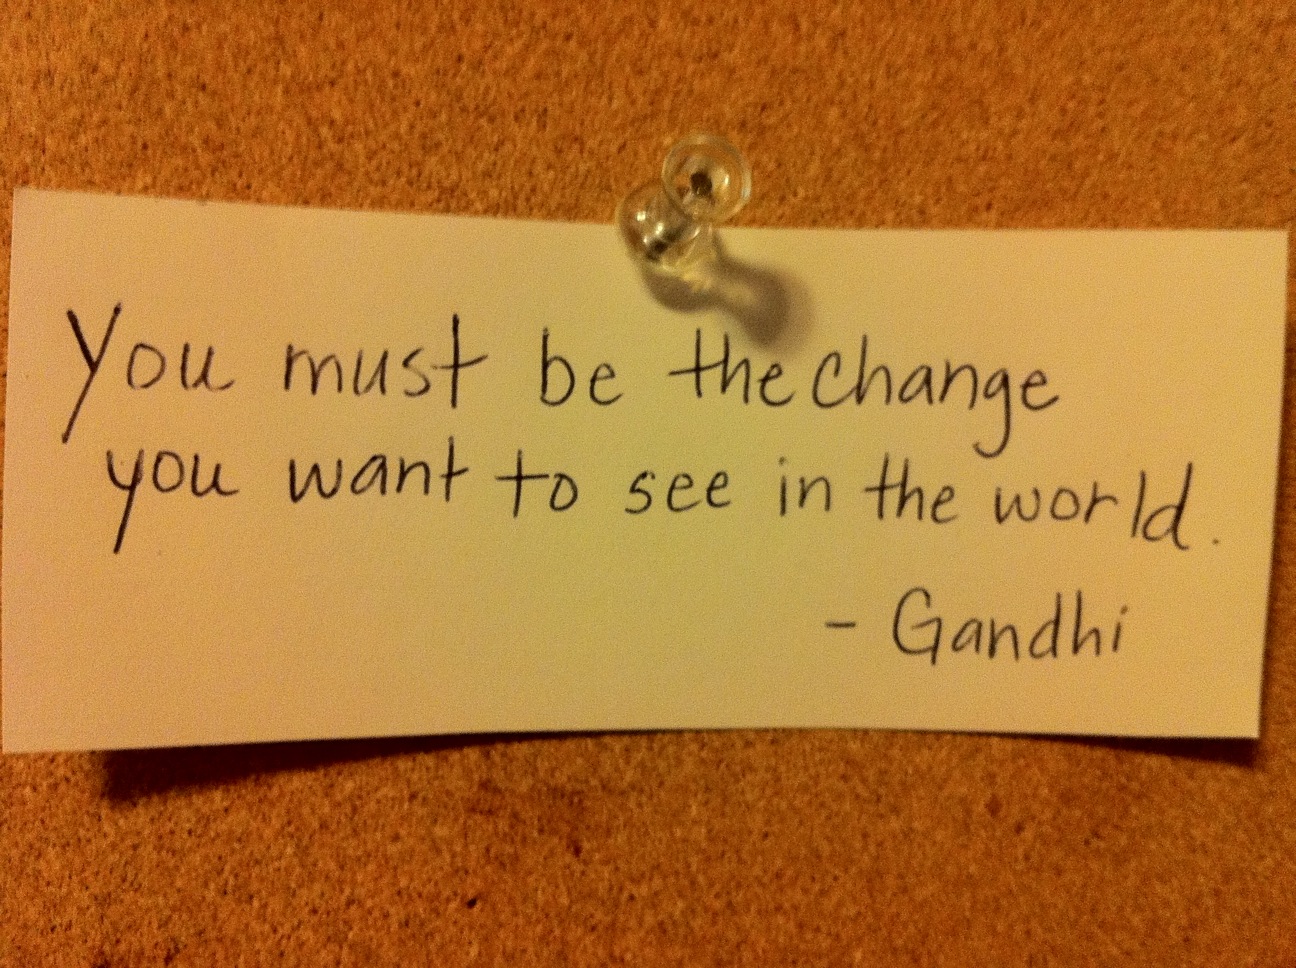 You must be the change
you want to see in the world.
- Gandhi